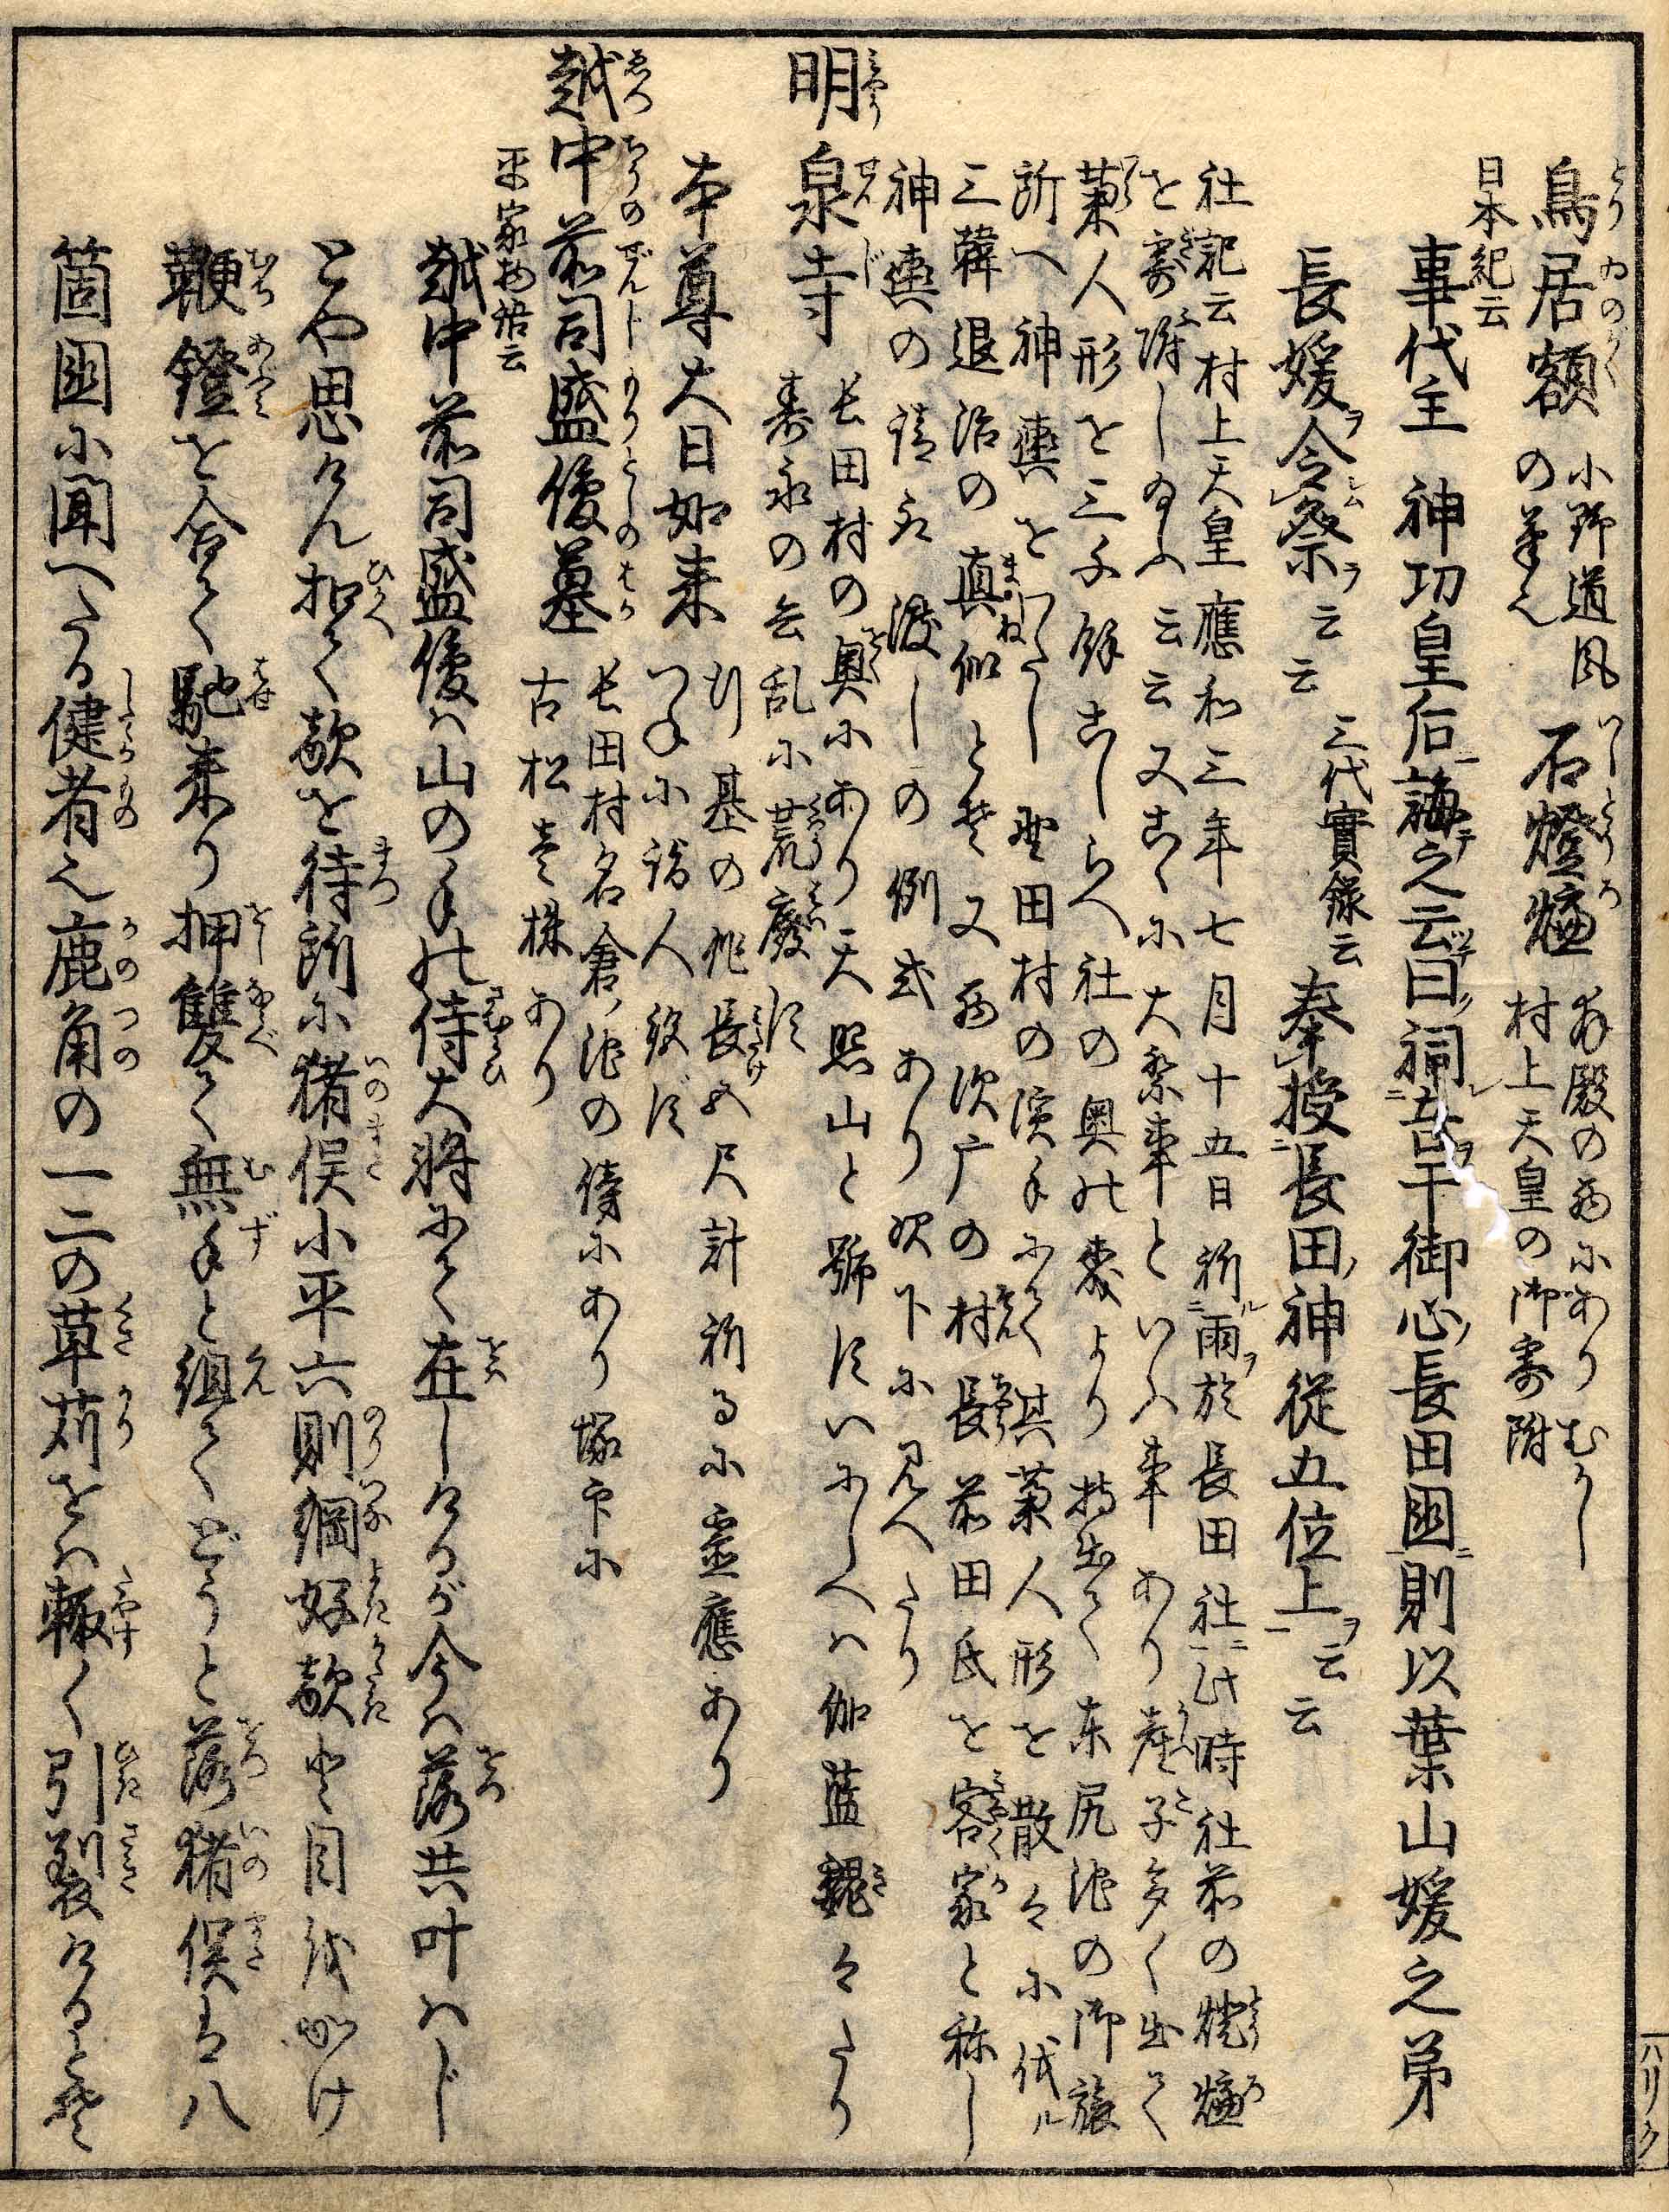 鳥居額 小野道風の筆也 石燈爐 本殿の西にありむかし村上天皇の御寄附
日本紀云
事代主神功皇后誨之云曰祠吾于御心長田国則以葉山媛之弟
長媛令祭云云 三代實録云 奉授長田神従五位上云云
社記云村上天皇應和三年七月十五日祈雨於長田社此時社前の燈爐
を寄附し給ふ云云又こゝに大祭事といふ事あり産子多く出て
藁人形を三千餘こしらへ社の奥の森より持出て东尻池の御旅
所へ神輿をわたし野田村の濱手にて其藁人形を散々に伐ル
三韓退治の真似とぞ又西須广の村長前田氏を客家と称し
神輿の請取渡しの例式あり次下に見へたり
明泉寺 长田村の奥にあり天照山と號すいにしへハ伽藍巍々たり
寿永の兵乱に荒廢す
本尊大日如来 行基の作長五尺計祈るに霊應あり
つねに詣人絶ず
越中前司盛俊墓 长田村名倉ノ池の傍にあり塚印に
古松壱株あり
平家物語云
越中前司盛俊ハ山の手の侍大将にて在しけるが今ハ落共叶ハじ
とや思けん扣て敵を待所に猪俣小平六則綱好敵と目を掛け
鞭鐙を合て馳来り押雙て無手と組てどうと落猪俣は八
箇国に聞へたる健者也鹿角の一二の草苅をハ輙く引裂けるとぞ
ハリク